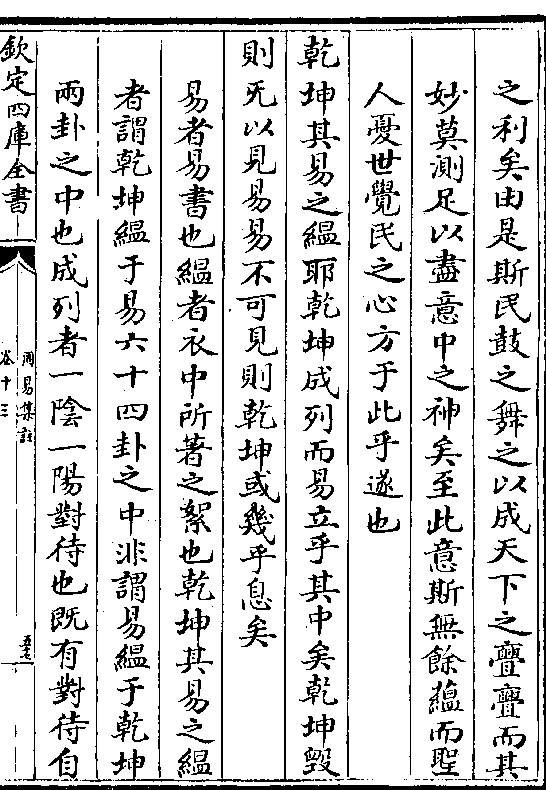 之利矣由是斯民鼓之舞之以成天下之亹亹而其
妙莫測足以盡意中之神矣至此意斯無餘蘊而聖
人憂世覺民之心方于此乎遂也
乾坤其易之縕耶乾坤成列而易立乎其中矣乾坤毀
則旡以見易易不可見則乾坤或幾乎息矣
易者易書也縕者衣中所著之絮也乾坤其易之縕
者謂乾坤縕于易六十四卦之中非謂易縕于乾坤
兩卦之中也成列者一陰一陽對待也既有對待自
欽定四庫全書
周易集註
卷十三